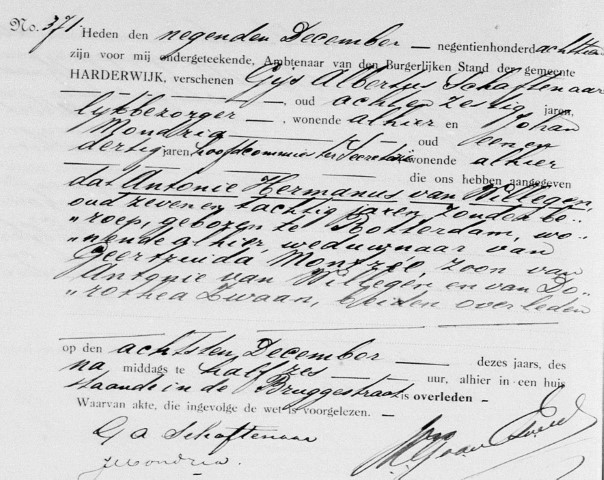 No. 371. Heden den negenden December — negentienhonderd achttien
zijn voor mij ondergeteekende, Ambtenaar van den Burgerlijken Stand der gemeente
HARDERWIJK, verschenen Gijs Albertus Schaftenaar
oud achtenzestig jaren,
lijkbezorger —, wonende alhier en Johan
Mondria — oud eenen
dertig jaren, hoofdcommies ter Secretarie wonende alhier
die ons hebben aangegeven
dat Antonie Hermanus van Willegen,
oud zevenentachtig jaren, zonder be-
"roep, geboren te Rotterdam, wo-
"nende alhier, weduwnaar van
Geertruida, zoon van
Antonie van Willegen en van Do-
"rothea Zwaan, beiden overleden
op den achtsten December — dezes jaars, des
na middags te half zes — uur, alhier in een huis
staande in de Bruggestraat is overleden —
Waarvan akte, die ingevolge de wet is voorgelezen. —
G A Schaftenaar
J Mondria